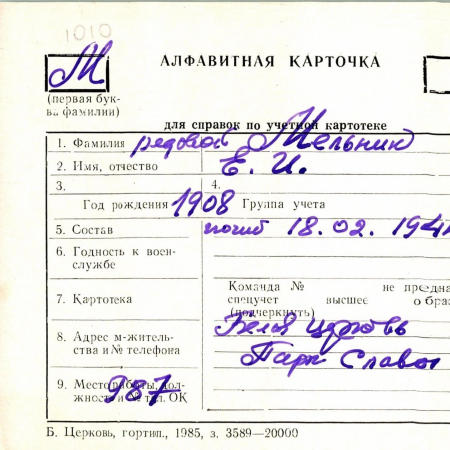 1010
М
АЛФАВИТНАЯ КАРТОЧКА
(первая бук-
ва фамилии)
для справок по учетной картотеке
1. Фамилия рядовой Мельник
2. Имя, отчество Е. И.
3. 4.
Год рождения 1908 Группа учета
5. Состав погиб 18.02.
6. Годность к воен-
службе
Команда № не предна
7. Картотека спецучет высшее обра
(подчеркнуть)
Белая Церковь
8. Адрес м-житель-
ства и № телефона Парк Славы
9. Место работы, дол-
жность и № тел. ОК 987
Б. Церковь, гортип., 1985, з. 3589—20000